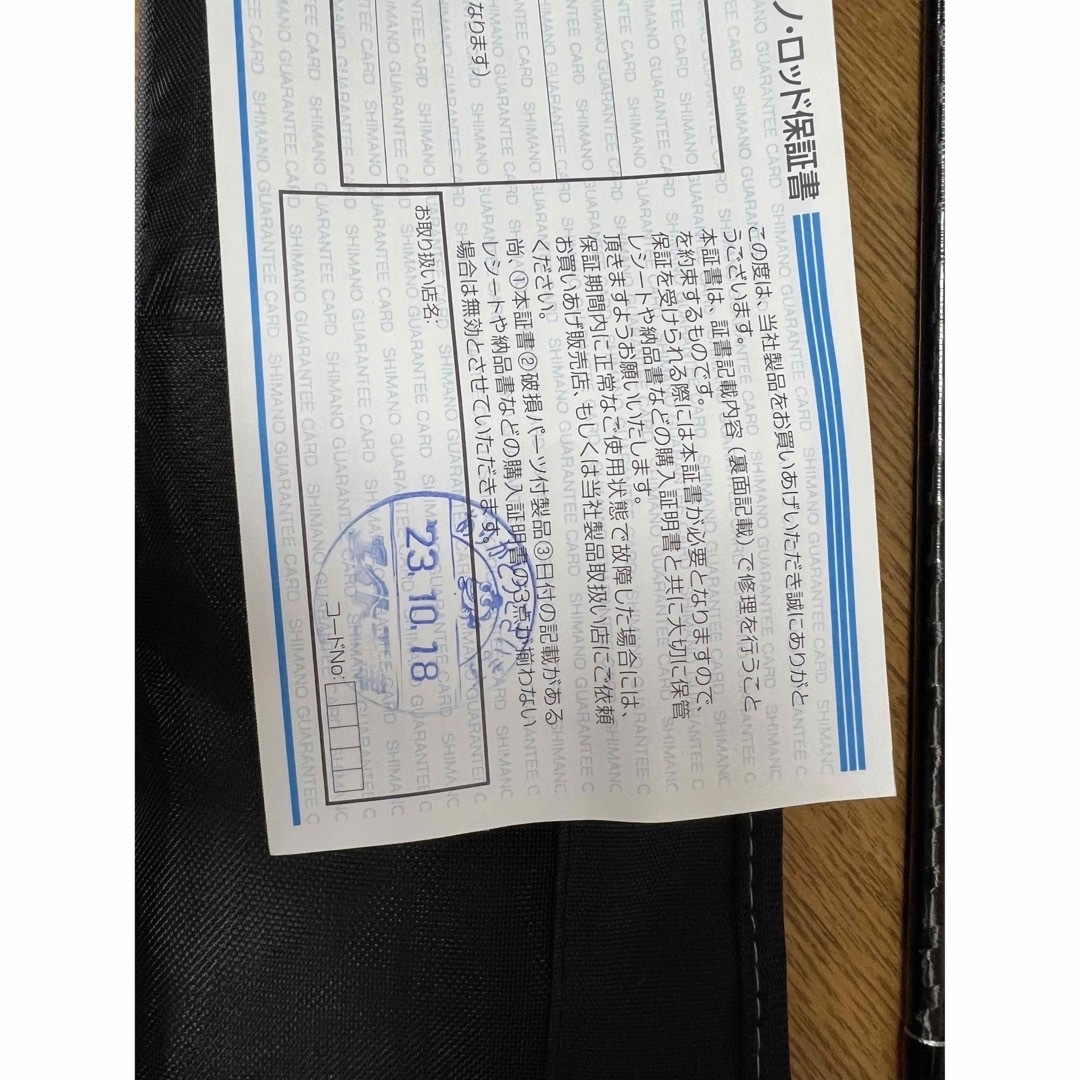 ノ・ロッド保証書
この度は、当社製品をお買いあげいただき誠にありがと
うございます。
本証書は、証書記載内容（裏面記載）で修理を行うこと
を約束するものです。
保証を受けられる際には本証書が必要となりますので、
レシートや納品書などの購入証明書と共に大切に保管
頂きますようお願いいたします。
保証期間内に正常なご使用状態で故障した場合には、
お買いあげ販売店、もしくは当社製品取扱い店にご依頼
ください。
尚、①本証書②破損パーツ付製品③日付の記載がある
レシートや納品書などの購入証明書の3点が揃わない
場合は無効とさせていただきます。
なります）
お取り扱い店名:
'23.10.18
コードNo:
SHIMANO GUARANTEE CARD